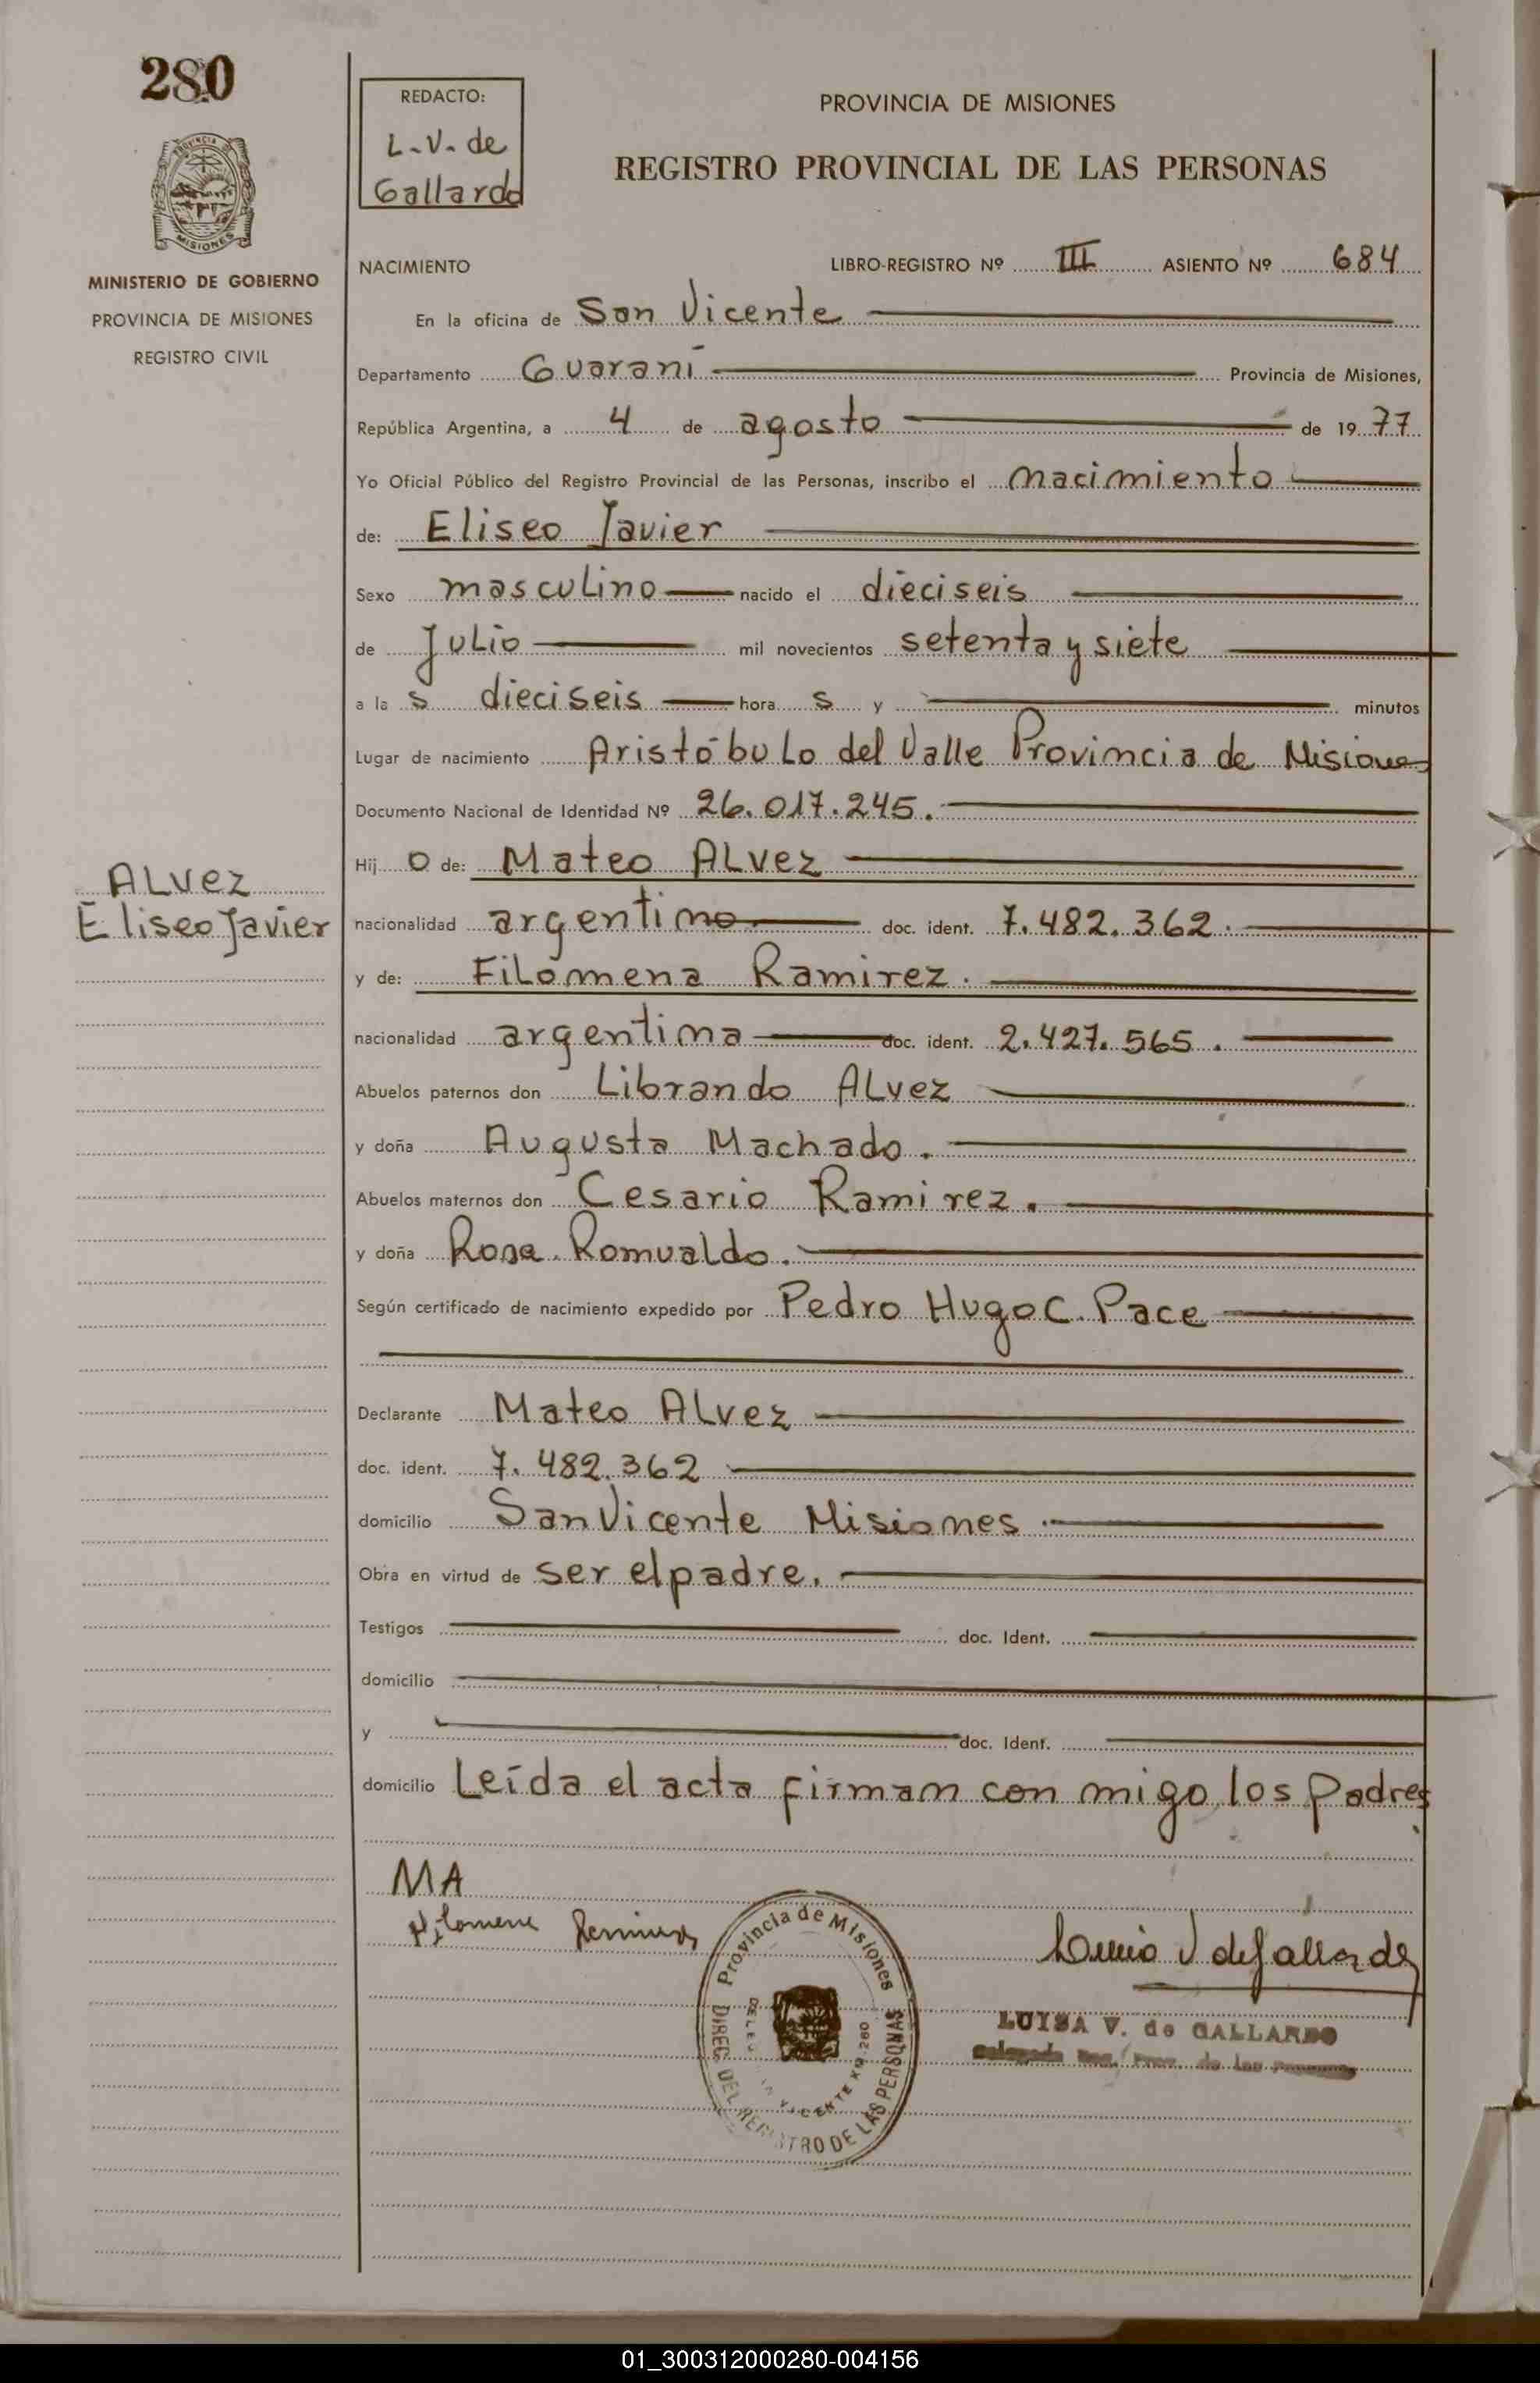 280
REDACTO:
L.V. de
Gallardo
PROVINCIA DE MISIONES
REGISTRO PROVINCIAL DE LAS PERSONAS
MISIONES
MINISTERIO DE GOBIERNO
PROVINCIA DE MISIONES
REGISTRO CIVIL
NACIMIENTO LIBRO-REGISTRO Nº III ASIENTO Nº 684
En la oficina de San Vicente
Departamento Guaraní Provincia de Misiones,
República Argentina, a 4 de agosto de 1977
Yo Oficial Público del Registro Provincial de las Personas, inscribo el nacimiento
de: Eliseo Javier
Sexo masculino nacido el dieciseis
de Julio mil novecientos setenta y siete
a la s dieciseis hora s y minutos
Lugar de nacimiento Aristóbulo del Valle Provincia de Misiones
Documento Nacional de Identidad Nº 26.017.245.
Hij o de: Mateo Alvez
ALvez
Eliseo Javier
nacionalidad argentino doc. ident. 7.482.362.
y de: Filomena Ramirez.
nacionalidad argentina doc. ident. 2.427.565.
Abuelos paternos don Librando Alvez
y doña Augusta Machado.
Abuelos maternos don Cesario Ramirez.
y doña Rosa Romualdo.
Según certificado de nacimiento expedido por Pedro Hugo C. Pace
Declarante Mateo Alvez
doc. ident. 7.482.362
domicilio San Vicente Misiones.
Obra en virtud de ser el padre.
Testigos doc. Ident.
domicilio
y doc. Ident.
domicilio Leída el acta firman con migo los padres
MA
Filomena Ramirez
Provincia de Misiones
DIREC. DEL REGISTRO DE LAS PERSONAS
VICENTE KM. 260
Luisa V de Gallardo
LUISA V. de GALLARDO
01_300312000280-004156